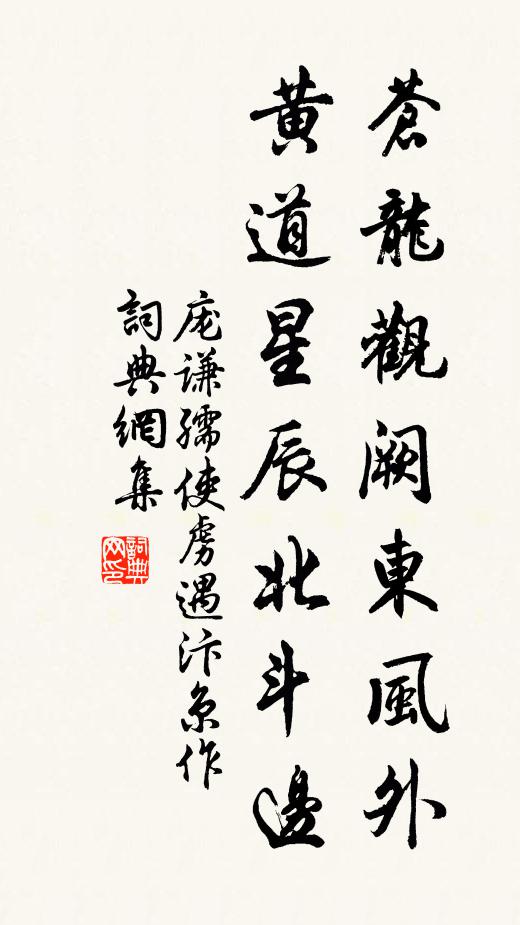 蒼龍觀闕東風外
黄道星辰北斗邊
庞谦孺使虏遇汴京作
詞典網集
詞典网印